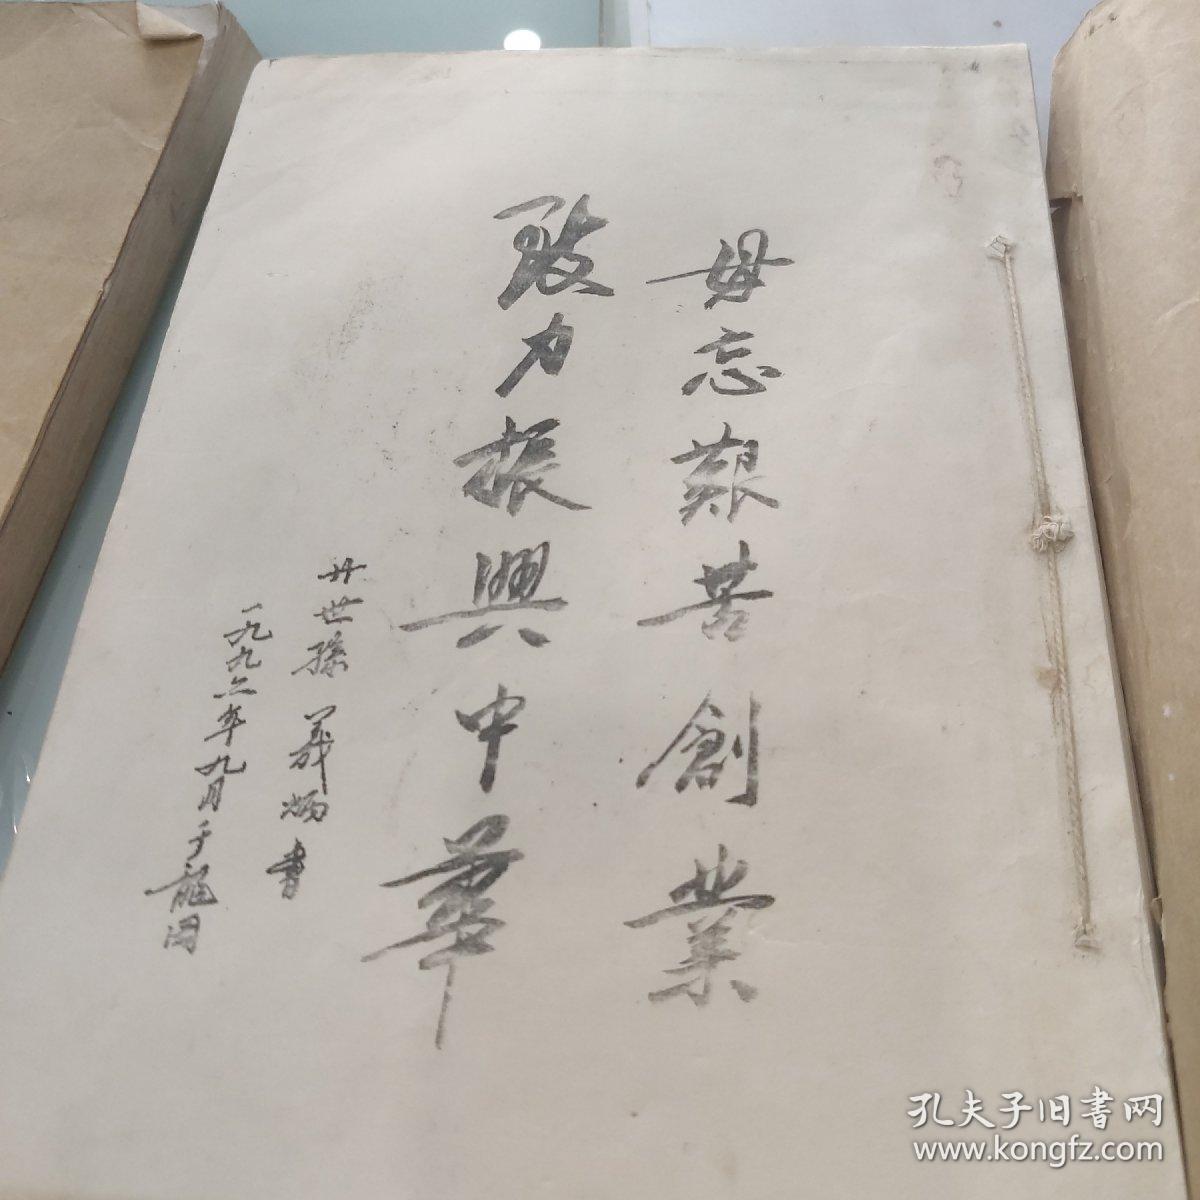 毋忘艱苦創業
致力振興中華
廿世孫 義炳書
一九九六年九月于龍岡
孔夫子旧书网
www.kongfz.com